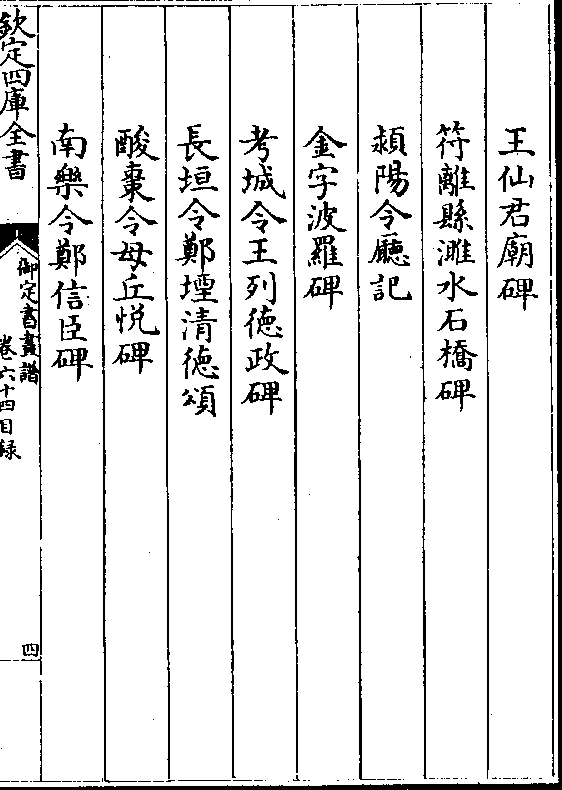 王仙君廟碑
符離縣濉水石橋碑
潁陽令廳記
金字波羅碑
考城令王列徳政碑
長垣令鄭壥清徳頌
酸棗令母丘悦碑
南樂令鄭信臣碑
欽定四庫全書
御定書畫譜
卷六十四目録
四